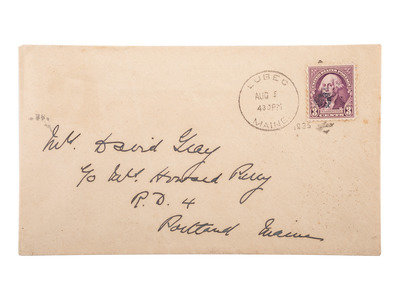 LUBEC
AUG 5
430PM
MAINE
1935
3 3
Mrs. David Gray
c/o Mrs Howard Perry
R. D. 4
Portland Maine